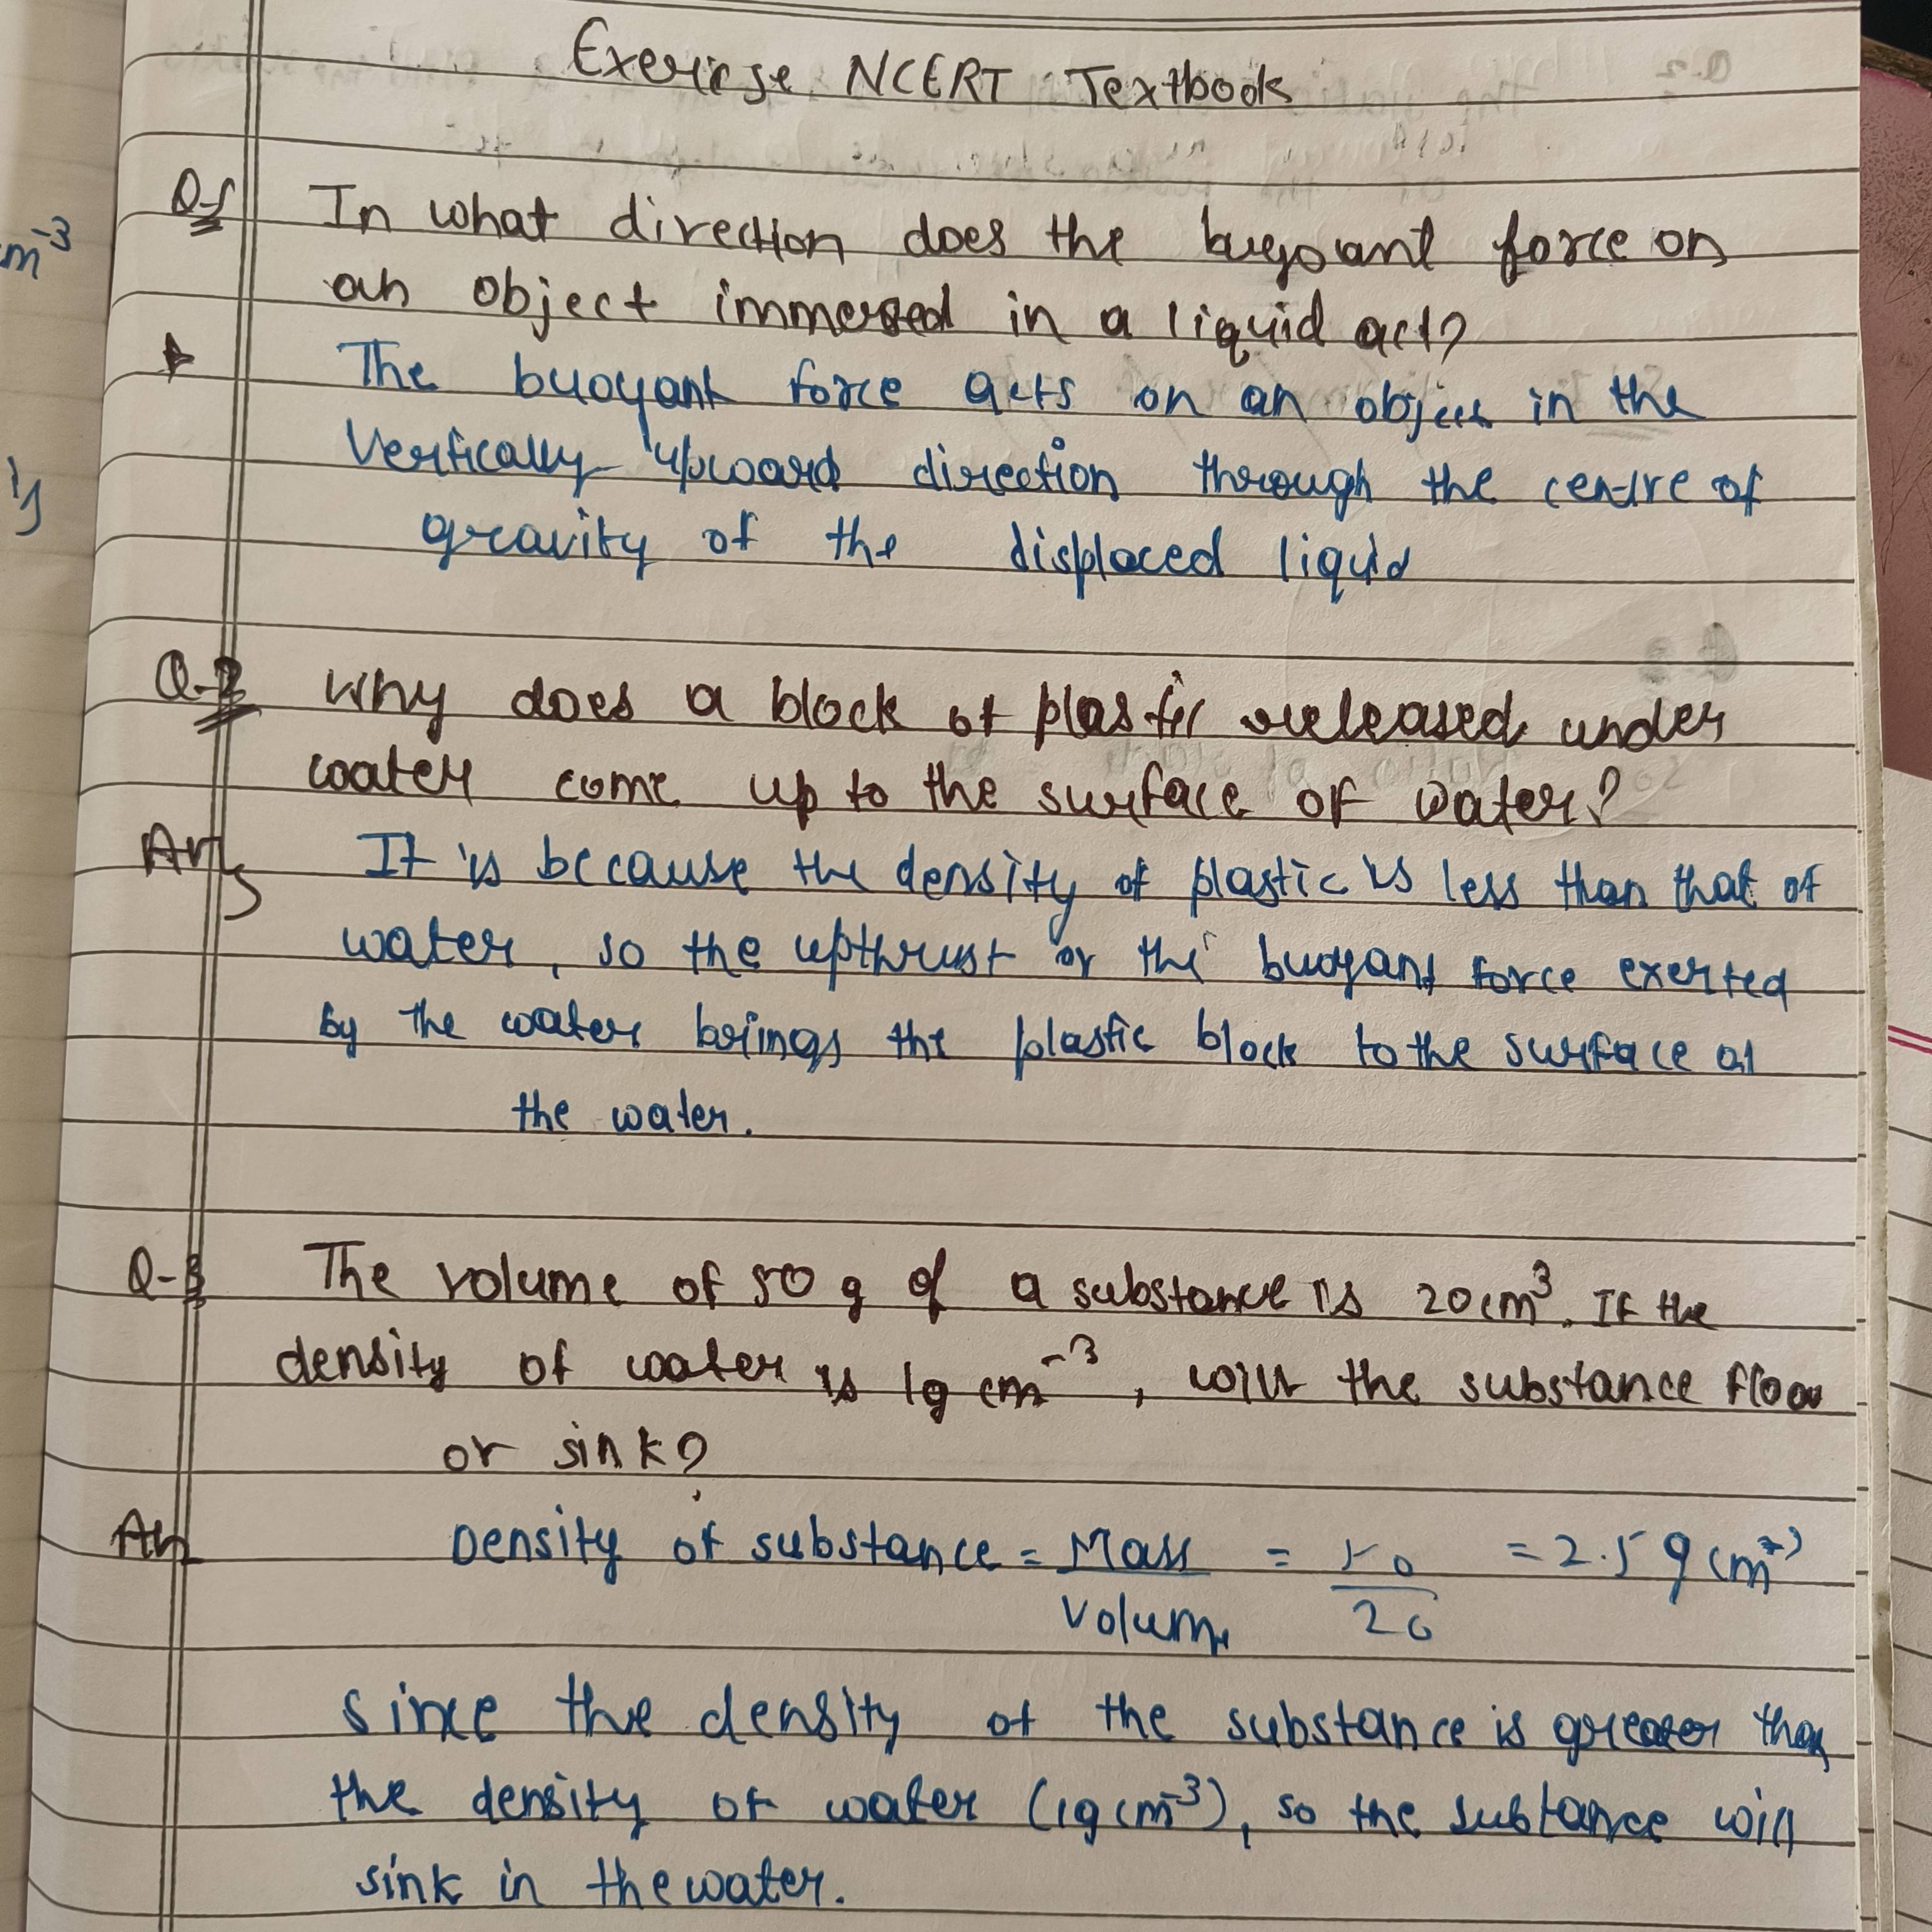 Exericse NCERT Textbook
Q-1 In what direction does the buyoant force on
an object immersed in a liquid act?
The buoyant force acts on an object in the
Vertically upward direction through the centre of
gravity of the displaced liquid
Q-2 Why does a block of plastic released under
water come up to the surface of water?
Ans It is because the density of plastic is less than that of
water, so the upthrust or the buoyant force exerted
by the water brings the plastic block to the surface of
the water.
Q-3 The volume of 50 g of a substance is 20 cm³. If the
density of water is 1g cm⁻³, will the substance float
or sink?
An Density of substance = Mass / Volume = 50 / 20 = 2.5 g cm⁻³
Since the density of the substance is greater than
the density of water (1g cm⁻³), so the subtance will
sink in the water.
m⁻³